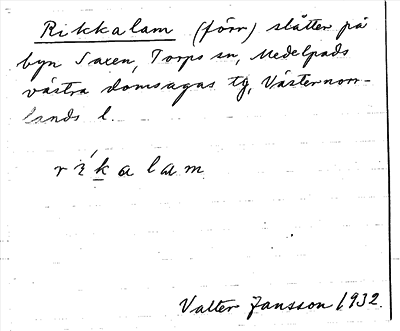 Rikkalam (förr) slåtter på
byn Saxen, Torps sn, Medelpads
västra domsagas tg, Västernorr-
lands l.
ríkalam
Valter Jansson 1932.